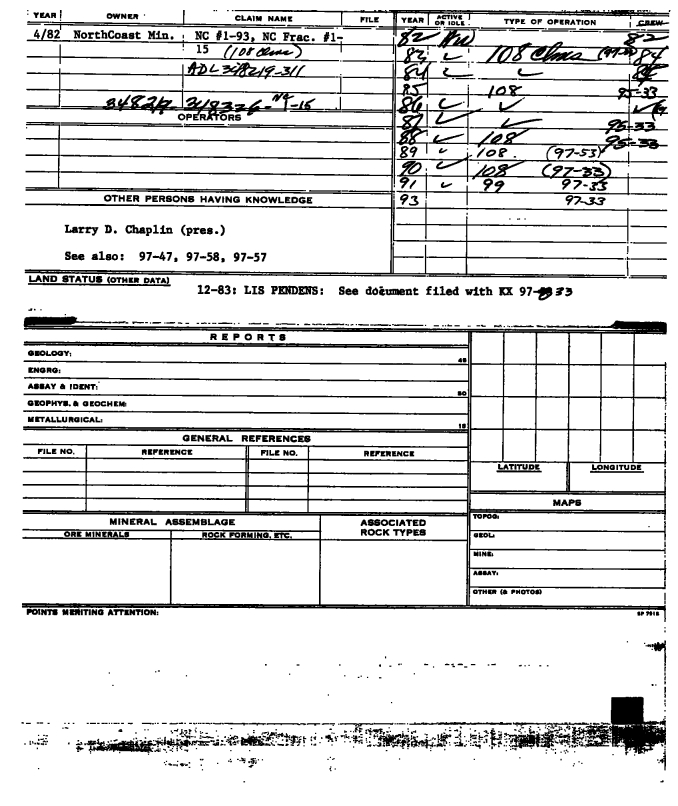 YEAR OWNER CLAIM NAME FILE YEAR ACTIVE OR IDLE TYPE OF OPERATION CREW
4/82 NorthCoast Min. NC #1-93, NC Frac. #1- 82
15 (108 Clms) 83 ✓ 108 Clms 84
ADL 348219-311 84 ✓ ✓
85 108 95-33
348326 - NC 1-15 86 ✓ ✓
OPERATORS 87 ✓ ✓ 95-33
88 ✓ 108 95-33
89 ✓ 108 (97-53)
90 ✓ 108 (97-33)
91 ✓ 99 97-33
OTHER PERSONS HAVING KNOWLEDGE 93 97-33
Larry D. Chaplin (pres.)
See also: 97-47, 97-58, 97-57
LAND STATUS (OTHER DATA)
12-83: LIS PENDENS: See document filed with KX 97-33
REPORTS
GEOLOGY: 45
ENGRG:
ASSAY & IDENT: 50
GEOPHYS. & GEOCHEM:
METALLURGICAL: 15
GENERAL REFERENCES
FILE NO. REFERENCE FILE NO. REFERENCE
LATITUDE LONGITUDE
MAPS
MINERAL ASSEMBLAGE ASSOCIATED ROCK TYPES TOPOG:
ORE MINERALS ROCK FORMING, ETC. GEOL:
MINE:
ASSAY:
OTHER (& PHOTOS)
POINTS MERITING ATTENTION: SP 7915